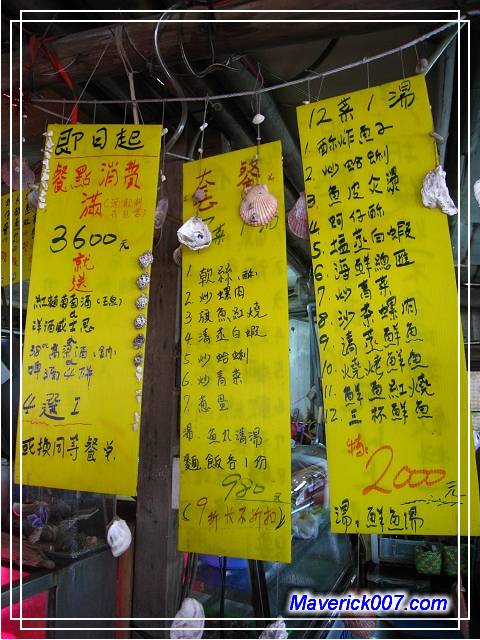 即日起
餐點消費
滿
3600元
就
送
紅麴葡萄酒(玉泉)
洋酒威士忌
38°高粱酒
啤酒4瓶
4選1
或換同等餐点
套餐
7菜1湯
1. 軟絲(酥)
2. 炒螺肉
3. 旗魚紅燒
4. 清蒸白蝦
5. 炒蛤蜊
6. 炒青菜
7. 蔥蛋
湯. 魚丸清湯
麵飯各1份
980元
(9折 恕不折扣)
12菜1湯
1. 酥炸魚子
2. 炒蛤蜊
3. 魚皮
4. 蚵仔酥
5. 塩蒸白蝦
6. 海鮮總匯
7. 炒高菜
8. 沙茶螺肉
9. 清蒸鮮魚
10. 燒烤鮮魚
11. 鮮魚紅燒
12. 三杯鮮魚
特:
2000元
湯:鮮魚湯
Maverick007.com